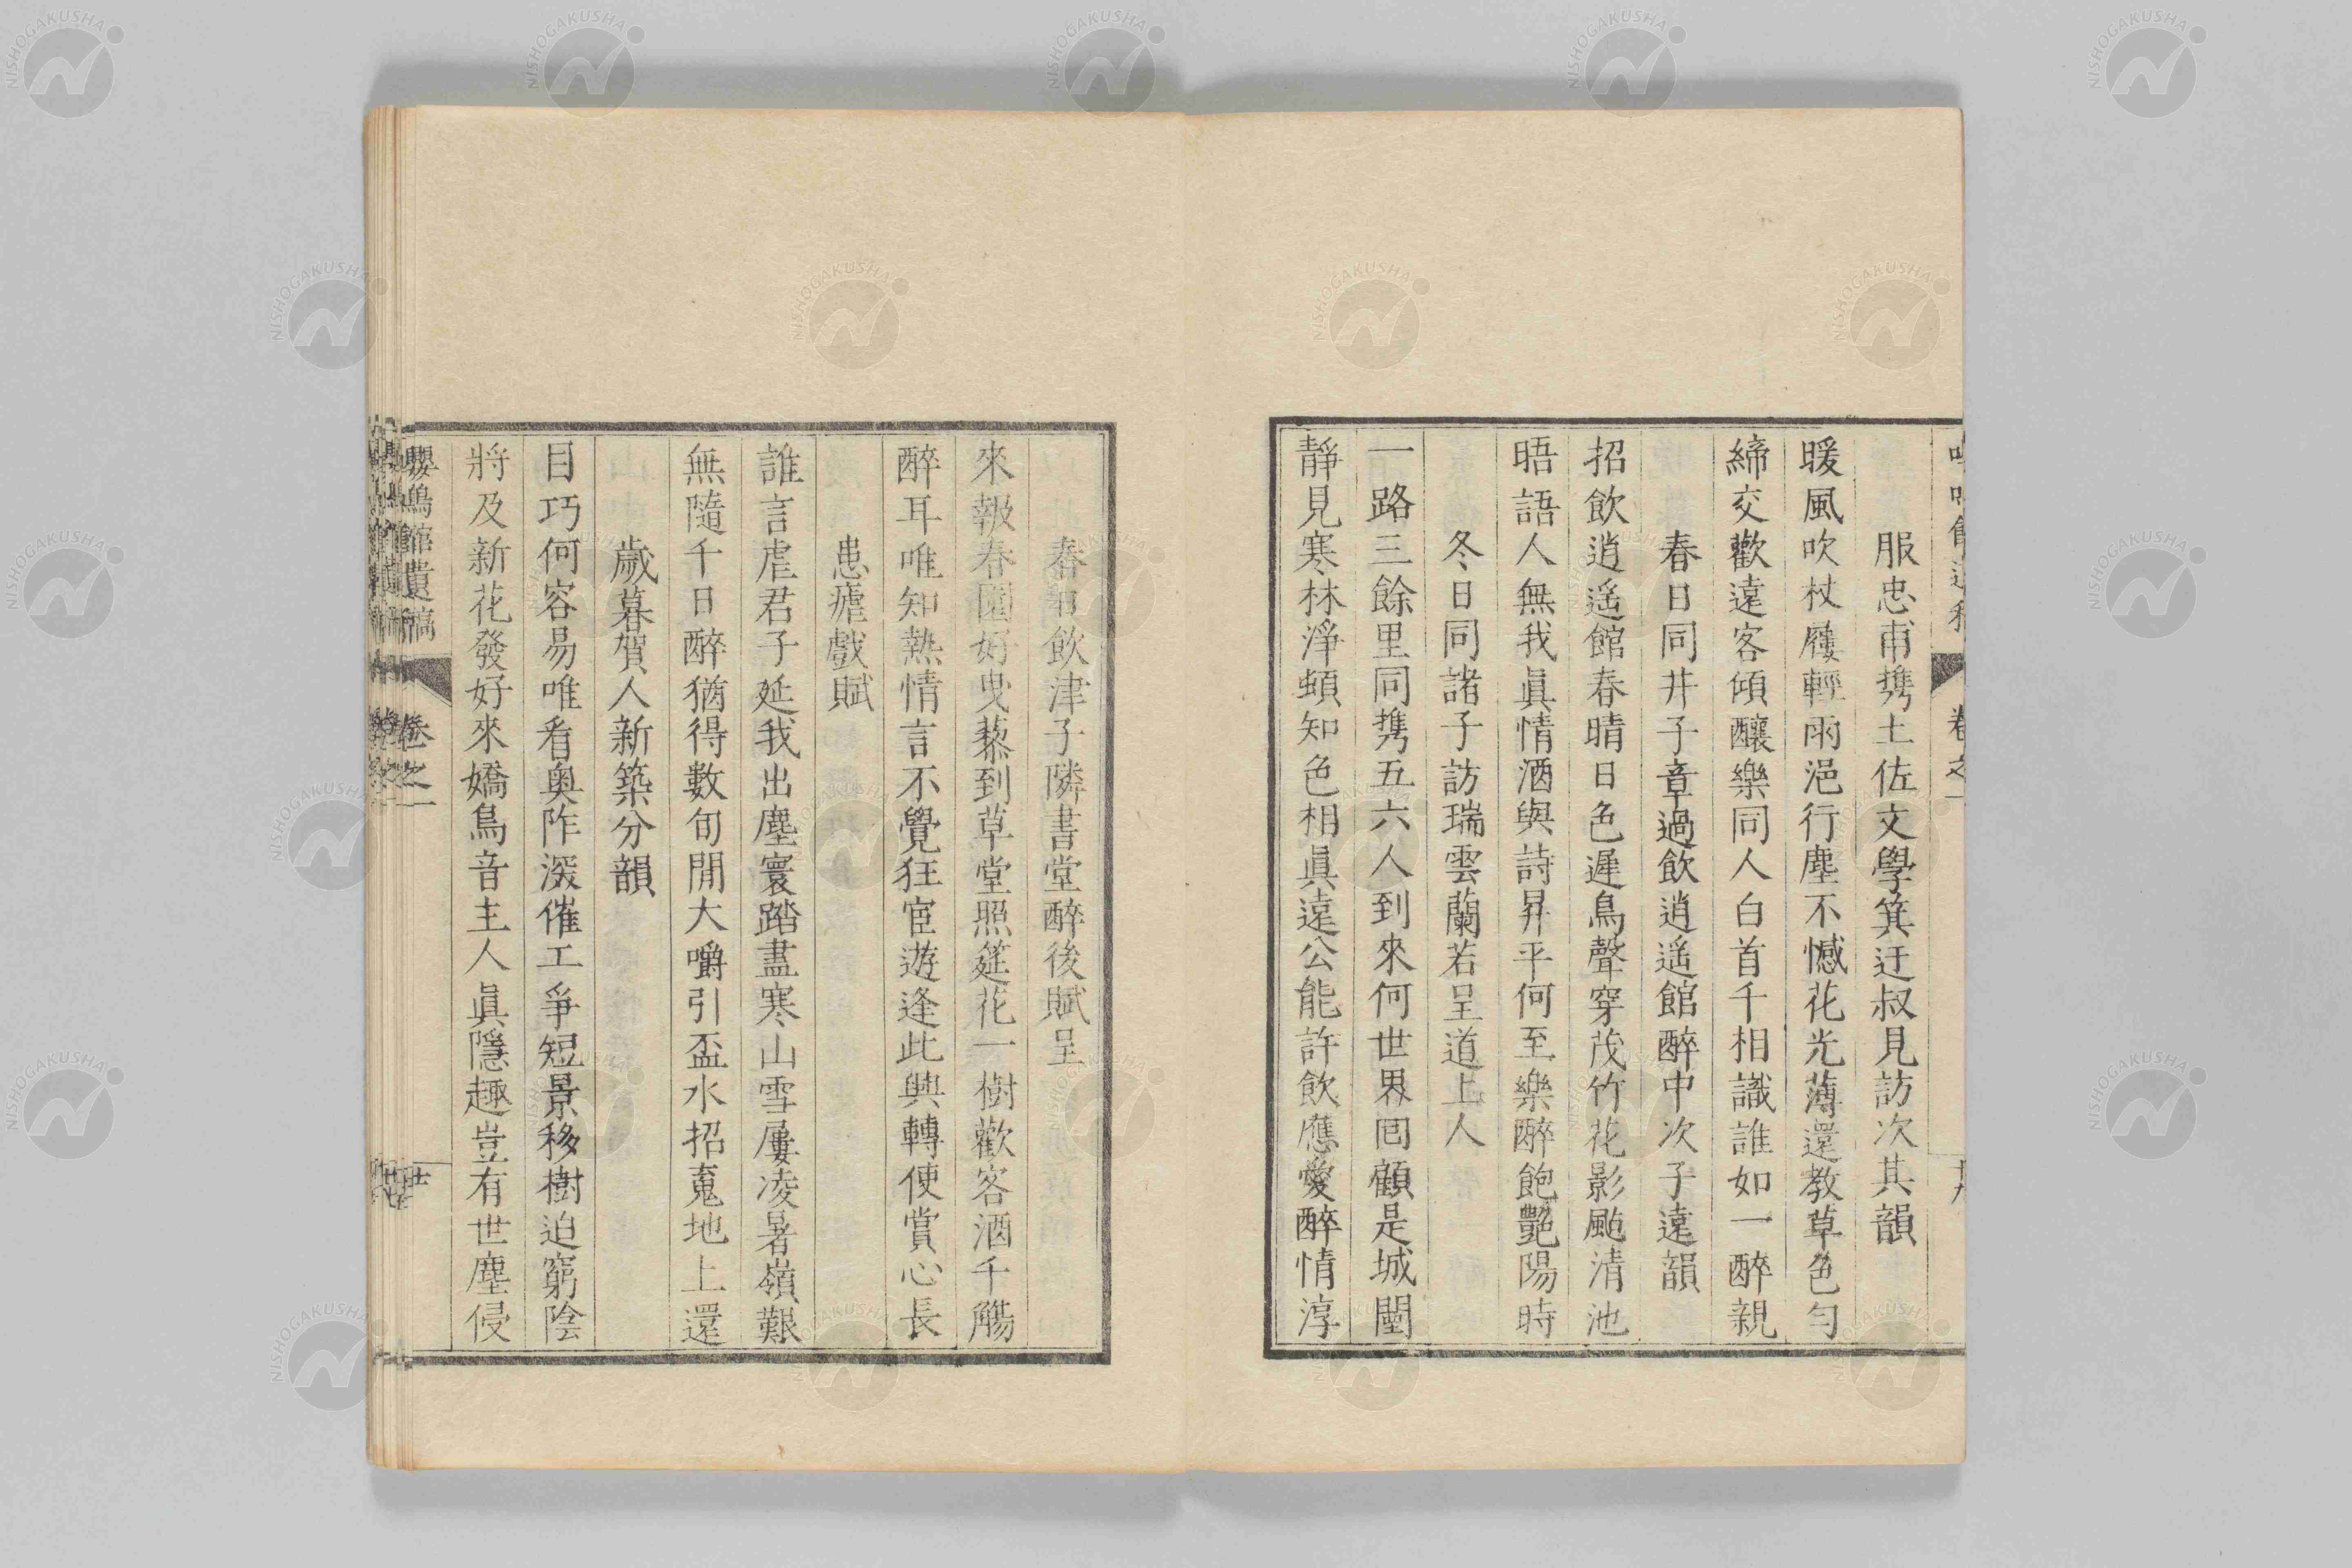 服忠甫携土佐文學箕迂叔見訪次其韻
暖風吹杖屨輕雨浥行塵不憾花光薄還教草色勻
締交歡遠客傾釀樂同人白首千相識誰如一醉親
春日同井子章過飲逍遙館醉中次子遠韻
招飲逍遙館春晴日色遲鳥聲穿茂竹花影颭清池
晤語人無我眞情酒與詩昇平何至樂醉飽艷陽時
冬日同諸子訪瑞雲蘭若呈道上人
一路三餘里同携五六人到來何世界囘顧是城闉
靜見寒林淨蝢知色相眞遠公能許飲應愛醉情淳
春日飲津子隣書堂醉後賦呈
來報春園好曳藜到草堂照筵花一樹歡客酒千觴
醉耳唯知熱情言不覺狂宦遊逢此興轉使賞心長
患瘧戲賦
誰言虐君子延我出塵寰踏盡寒山雪屢凌暑嶺艱
無隨千日醉猶得數旬閒大嚼引盃水招䰟地上還
歲暮賀人新築分韻
目巧何容易唯看奧阼深催工爭短景移樹迫窮陰
將及新花發好來嬌鳥音主人眞隱趣豈有世塵侵
嚶鳴館遺稿 卷之一
NISHOGAKUSHA